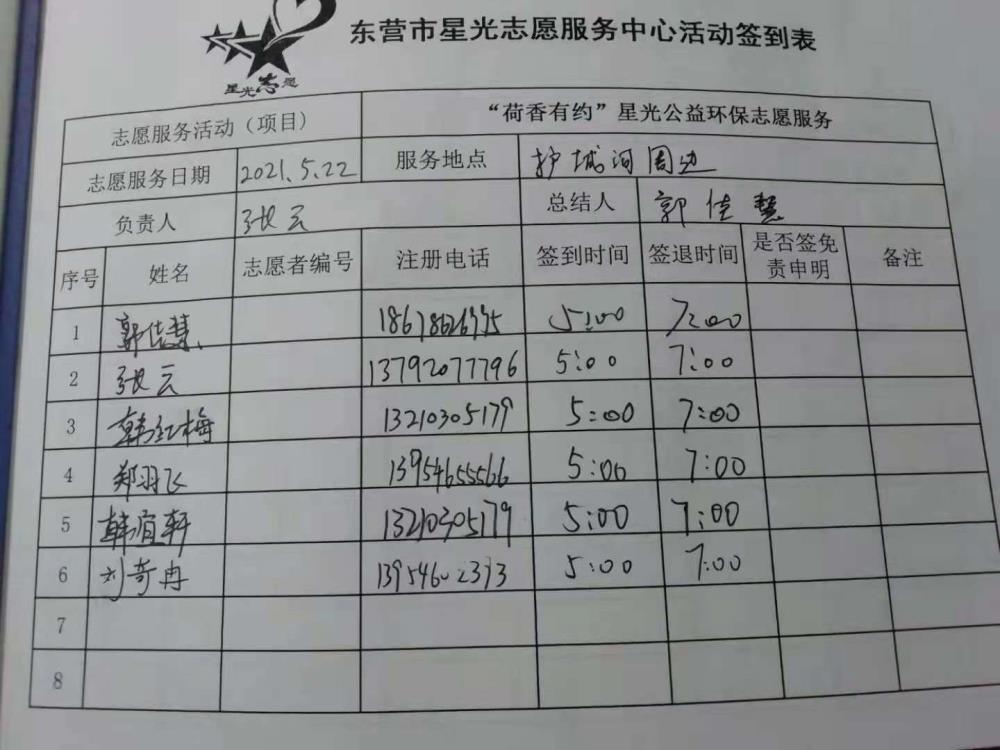 东营市星光志愿服务中心活动签到表
星光志愿
志愿服务活动（项目） “荷香有约”星光公益环保志愿服务
志愿服务日期 2021.5.22 服务地点 护城河周边
负责人 张云 总结人 郭佳慧
序号 姓名 志愿者编号 注册电话 签到时间 签退时间 是否签免责申明 备注
1 郭佳慧 5:00 7:00
2 张云 13792077796 5:00 7:00
3 韩红梅 13210305179 5:00 7:00
4 郑羽飞 13954655566 5:00 7:00
5 韩宜轩 13210305179 5:00 7:00
6 刘奇冉 5:00 7:00
7
8